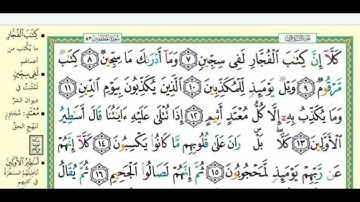 كَلَّا إِنَّ كِتَٰبَ ٱلْفُجَّارِ لَفِى سِجِّينٍ ٧ وَمَآ أَدْرَىٰكَ مَا سِجِّينٌ ٨ كِتَٰبٌ
مَّرْقُومٌ ٩ وَيْلٌ يَوْمَئِذٍ لِّلْمُكَذِّبِينَ ١٠ ٱلَّذِينَ يُكَذِّبُونَ بِيَوْمِ ٱلدِّينِ ١١
وَمَا يُكَذِّبُ بِهِۦٓ إِلَّا كُلُّ مُعْتَدٍ أَثِيمٍ ١٢ إِذَا تُتْلَىٰ عَلَيْهِ ءَايَٰتُنَا قَالَ أَسَٰطِيرُ
ٱلْأَوَّلِينَ ١٣ كَلَّا بَلْ رَانَ عَلَىٰ قُلُوبِهِم مَّا كَانُوا۟ يَكْسِبُونَ ١٤ كَلَّآ إِنَّهُمْ
عَن رَّبِّهِمْ يَوْمَئِذٍ لَّمَحْجُوبُونَ ١٥ ثُمَّ إِنَّهُمْ لَصَالُوا۟ ٱلْجَحِيمِ ١٦ ثُمَّ يُقَالُ
كِتَٰبَ ٱلْفُجَّارِ
مَا يُكْتَبُ مِن
أعمالهم
لَفِى سِجِّينٍ
لَمُثبَتٌ فى
ديوان الشرّ
مُعْتَدٍ: مُتجاوِزٍ
لنهج الحق
أَسَٰطِيرُ ٱلْأَوَّلِينَ